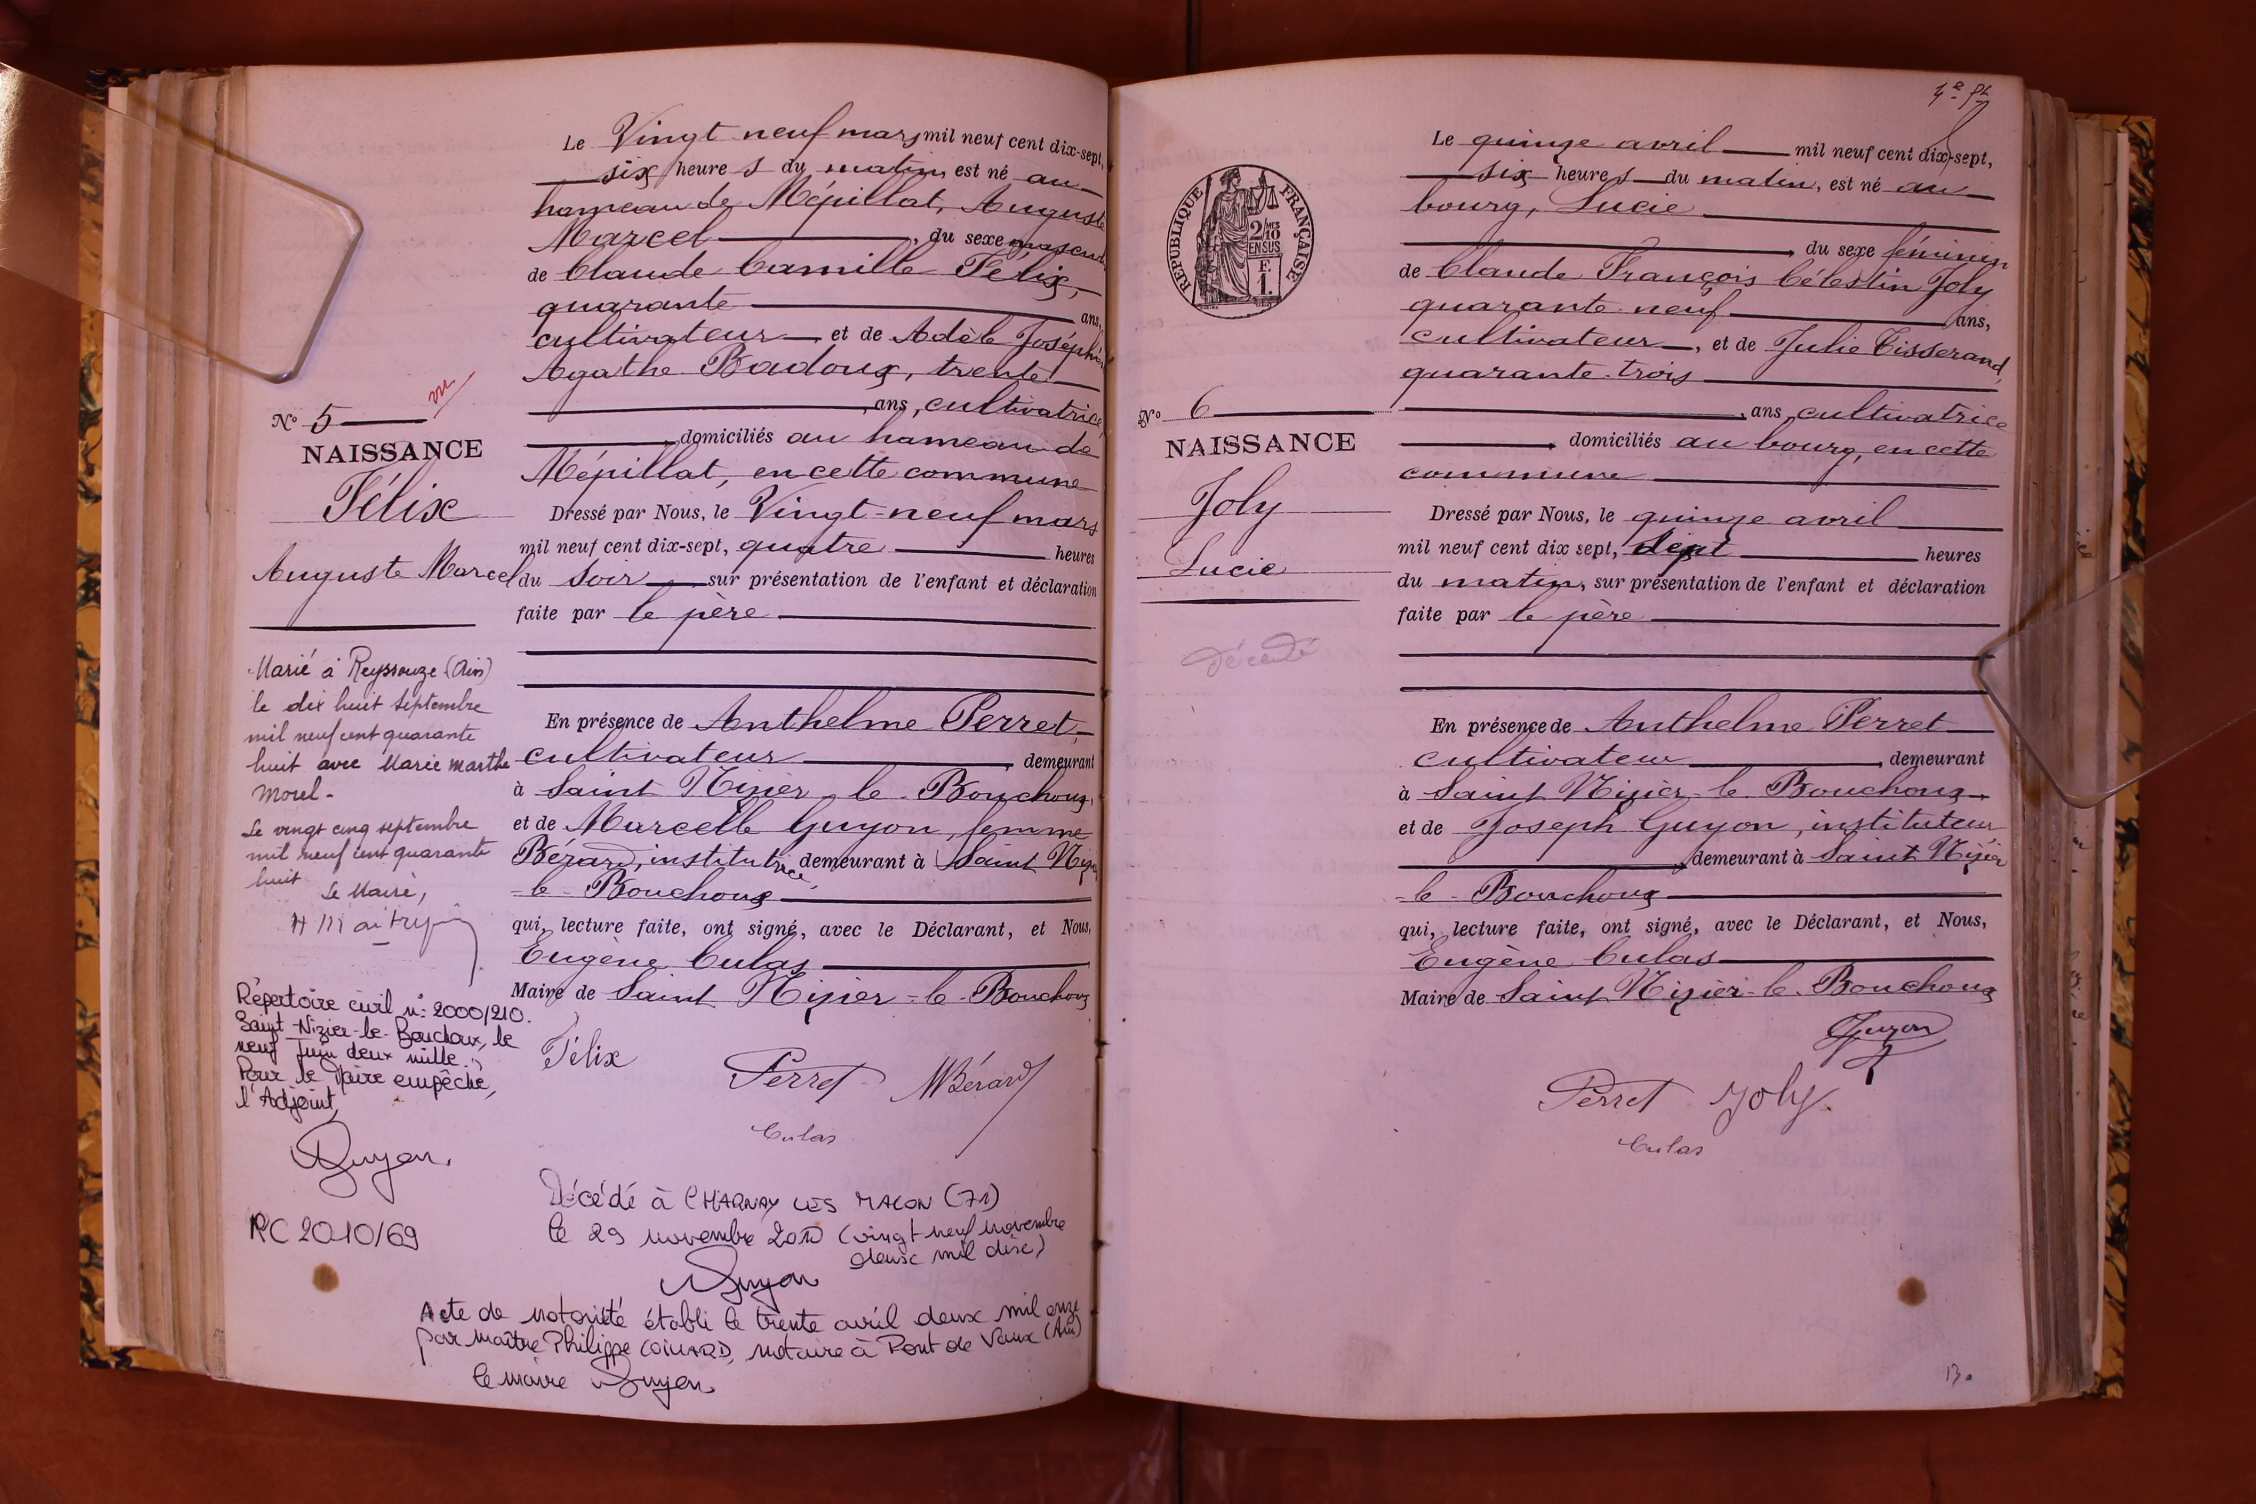 Le Vingt neuf mars mil neuf cent dix-sept,
six heures du matin est né au
hameau de Mépillat, Auguste
Marcel, du sexe masculin
de Claude Camille Félix,
quarante ans,
cultivateur, et de Adèle Joséphine
Agathe Badoux, trente
ans, cultivatrice,
domiciliés au hameau de
Mépillat, en cette commune
Dressé par Nous, le Vingt-neuf mars
mil neuf cent dix-sept, quatre heures
du soir sur présentation de l'enfant et déclaration
faite par le père
En présence de Anthelme Perret,
cultivateur, demeurant
à Saint Nizier-le-Bouchoux,
et de Marcelle Guyon, femme
Bérard, institutrice, demeurant à Saint Nizier
-le-Bouchoux
qui, lecture faite, ont signé, avec le Déclarant, et Nous,
Eugène Culas
Maire de Saint Nizier-le-Bouchoux
Félix
Perret
MBérard
Culas
N° 5
vu
NAISSANCE
Félix
Auguste Marcel
Marié à Reyssouze (Ain)
le dix huit septembre
mil neuf cent quarante
huit avec Marie Marthe
Morel-
Le vingt cinq septembre
mil neuf cent quarante
huit
Le Maire,
Répertoire civil n°: 2000/210.
Saint-Nizier-le-Bouchoux, le
neuf Juin deux mille.
Pour le Maire empêché,
l'Adjoint,
Guyon.
RC 2010/69
Décédé à CHARNAY LES MACON (71)
le 29 novembre 2010 (vingt neuf novembre
deux mil dix)
Guyon
Acte de notoriété établi le trente avril deux mil onze
par Maître Philippe COILLARD, notaire à Pont de Vaux (Ain)
le maire Guyon
Le quinze avril mil neuf cent dix-sept,
six heures du matin, est né au
bourg, Lucie
, du sexe féminin
de Claude François Célestin Joly
quarante-neuf ans,
cultivateur, et de Julie Tisserand,
quarante-trois
, ans, cultivatrice
, domiciliés au bourg, en cette
commune
Dressé par Nous, le quinze avril
mil neuf cent dix sept, sept heures
du matin, sur présentation de l'enfant et déclaration
faite par le père
En présence de Anthelme Perret
cultivateur, demeurant
à Saint Nizier-le-Bouchoux
et de Joseph Guyon, instituteur
, demeurant à Saint Nizier
-le-Bouchoux
qui, lecture faite, ont signé, avec le Déclarant, et Nous,
Eugène Culas
Maire de Saint Nizier-le-Bouchoux
Guyon
Perret Joly
Culas
RÉPUBLIQUE FRANÇAISE
2/MES
10
EN SUS
F.
1.
N° 6
NAISSANCE
Joly
Lucie
Décédé
13.